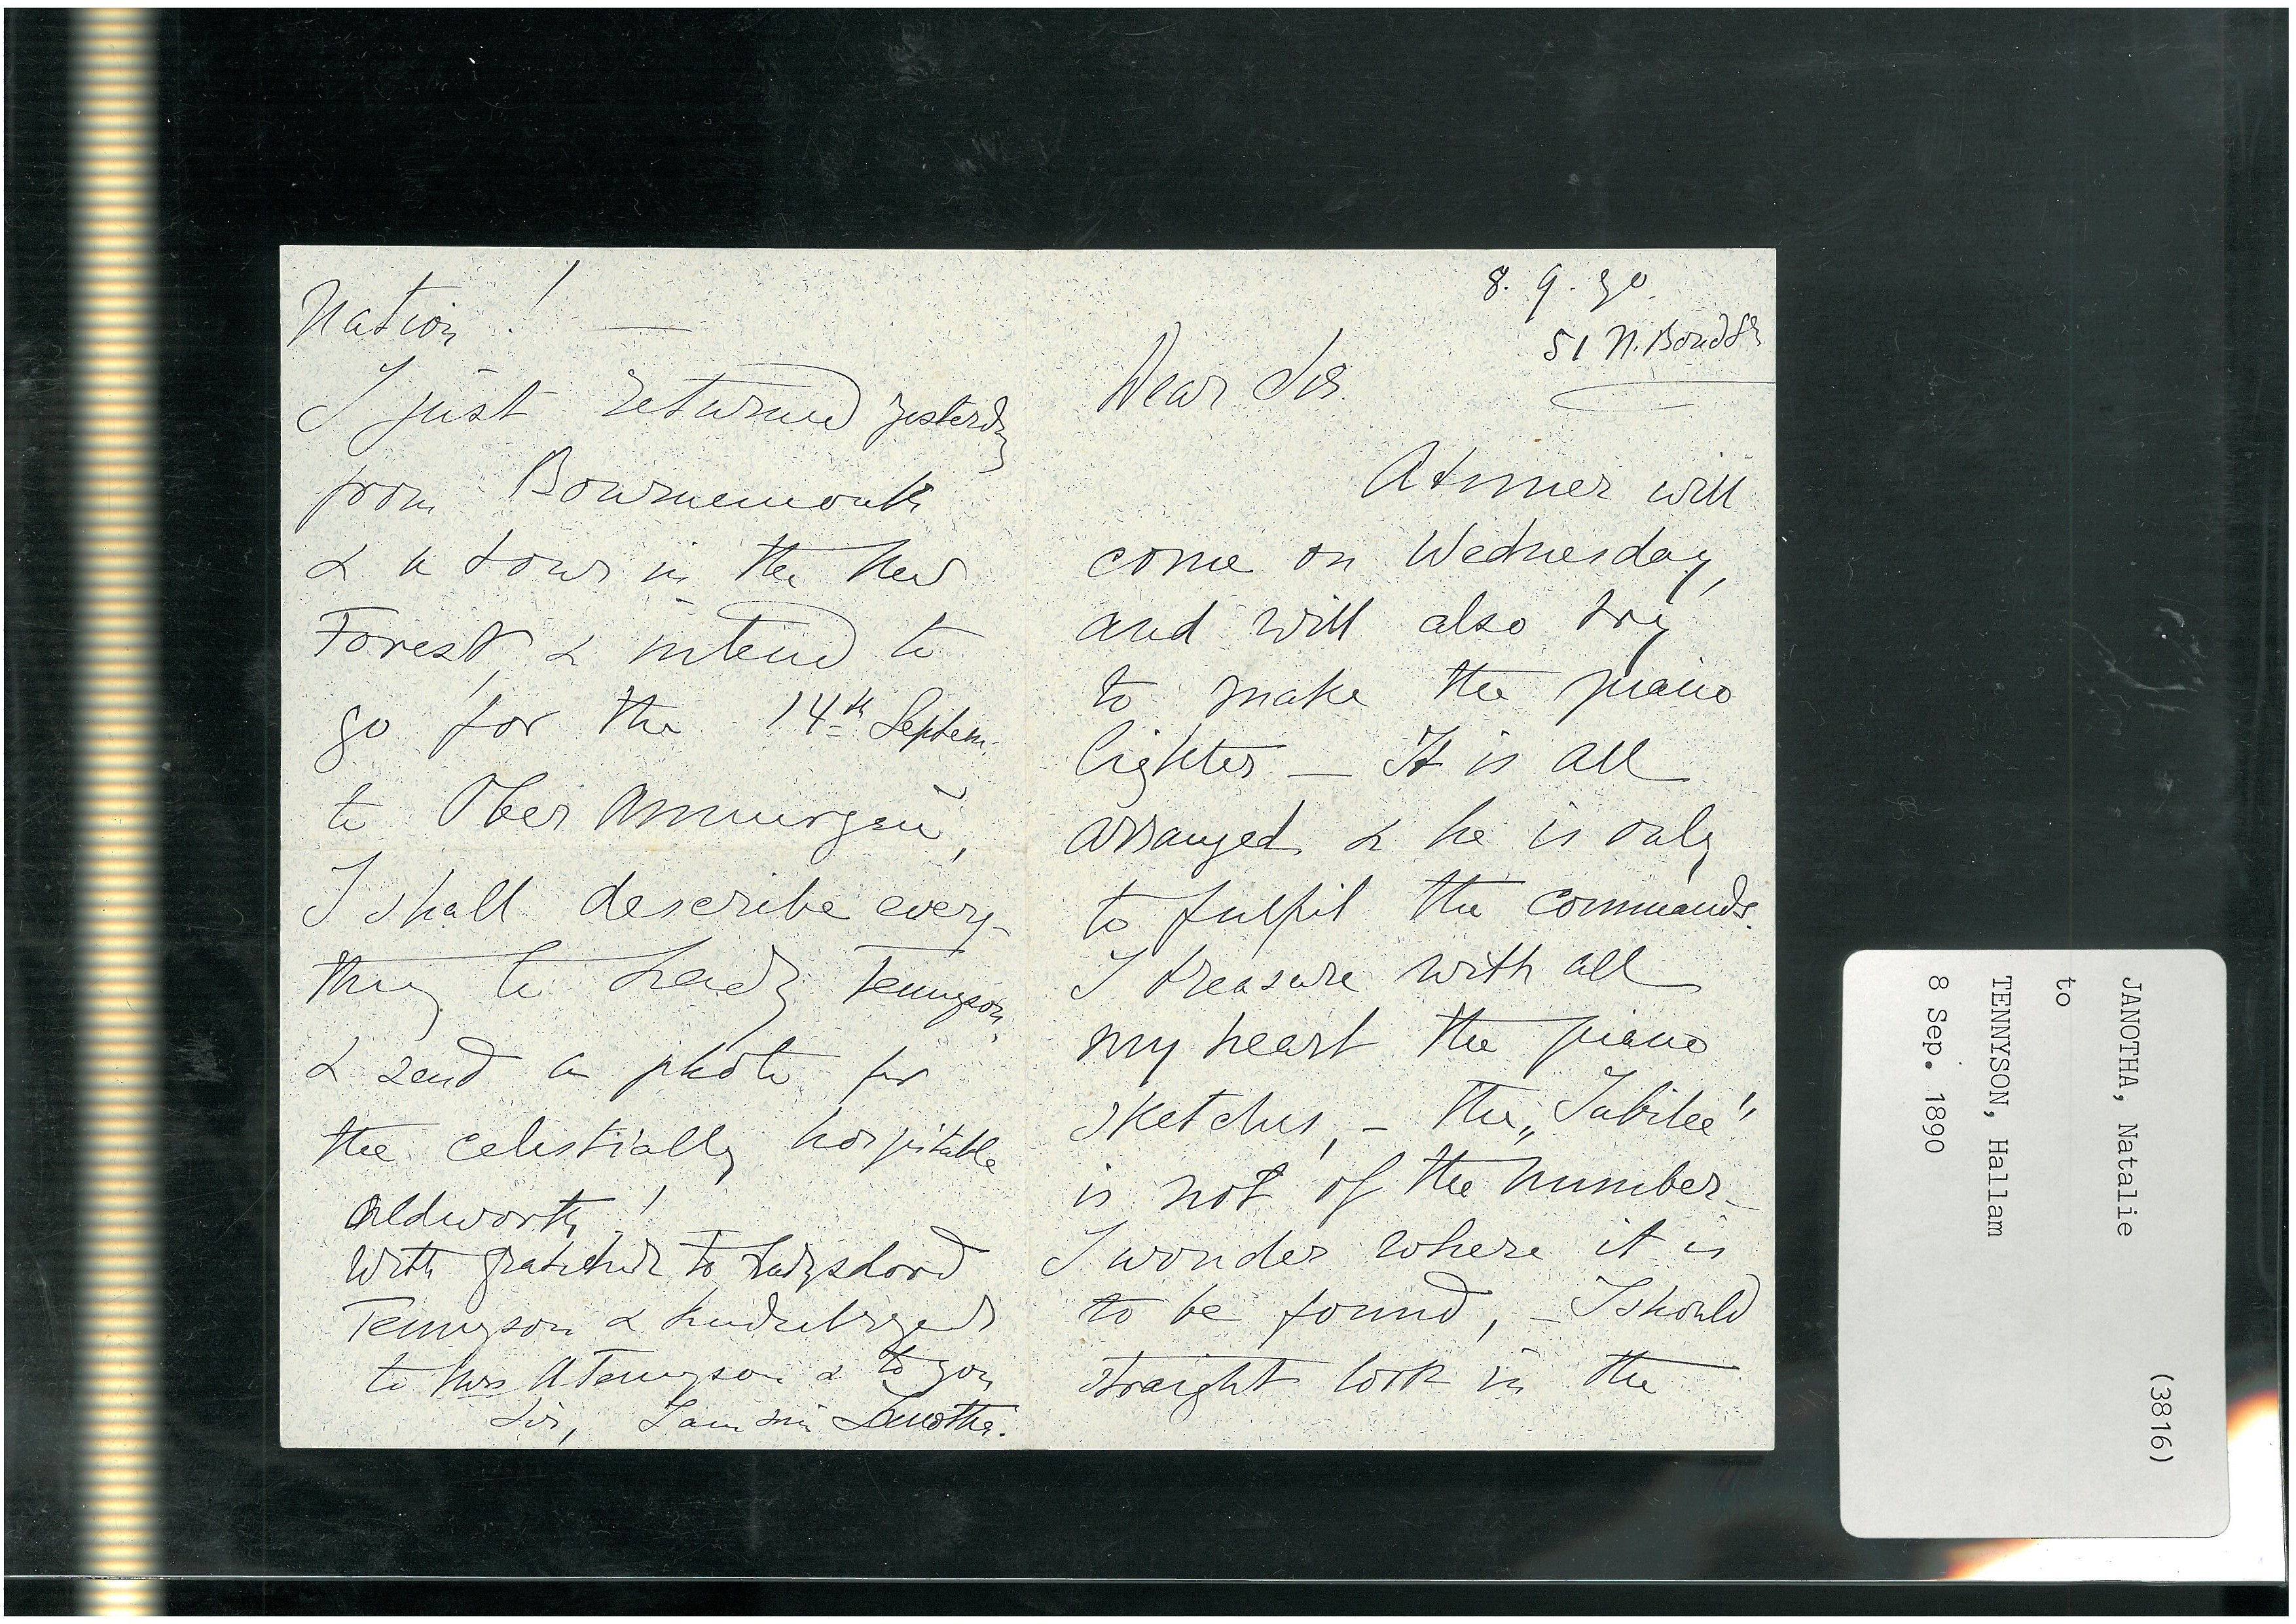 8. 9. 90.
51 N. Bond St
Dear Sir.
A tuner will
come on Wednesday,
and will also try
to make the piano
lighter — It is all
arranged & he is only
to fulfil the commands.
I treasure with all
my heart the piano
sketches, – the „Jubilee"
is not of the number –
I wonder where it is
to be found, – I should
straight look in the
Nation! —
I just returned yesterday
from Bournemouth
& a tour in the New
Forest, & intend to
go for the 14th Septem.
to Ober Ammergau,
I shall describe every-
thing to Lady Tennyson,
& send a photo for
the celestially hospitable
Aldworth!
With gratitude to Lady & Lord
Tennyson & kindest regards
to Mrs Tennyson & to you
Sir, I am Janotha.
JANOTHA, Natalie (3816)
to
TENNYSON, Hallam
8 Sep. 1890